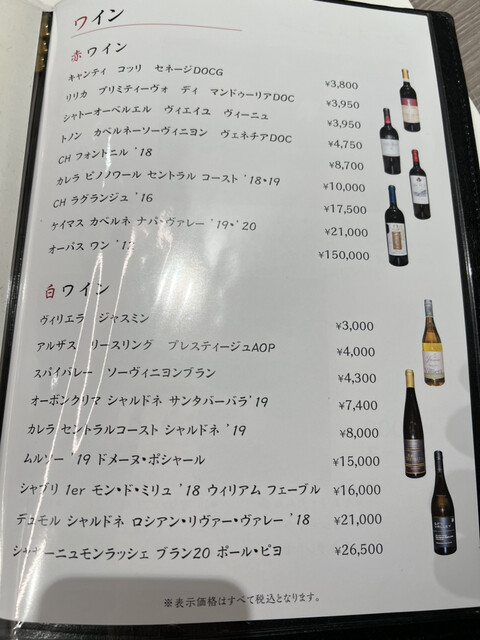 ワイン
赤ワイン
キャンティ コッリ セネージDOCG ¥3,800
リリカ プリミティーヴォ ディ マンドゥーリアDOC ¥3,950
シャトーオーベルエル ヴィエイユ ヴィーニュ ¥3,950
トノン カベルネーソーヴィニヨン ヴェネチアDOC ¥4,750
CH フォントニル '18 ¥8,700
カレラ ピノノワール セントラル コースト '18・19 ¥10,000
CH ラグランジュ '16 ¥17,500
ケイマス カベルネ ナパ・ヴァレー '19・'20 ¥21,000
オーパス ワン ¥150,000
白ワイン
ヴィリエラ ジャスミン ¥3,000
アルザス リースリング プレスティージュAOP ¥4,000
スパイバレー ソーヴィニヨンブラン ¥4,300
オーボンクリマ シャルドネ サンタバーバラ'19 ¥7,400
カレラ セントラルコースト シャルドネ '19 ¥8,000
ムルソー '19 ドメーヌ・ボシャール ¥15,000
シャブリ 1er モン・ド・ミリュ '18 ウィリアム フェーブル ¥16,000
デュモル シャルドネ ロシアン・リヴァー・ヴァレー '18 ¥21,000
シャサーニュモンラッシェ ブラン20 ポール・ピヨ ¥26,500
※表示価格はすべて税込となります。